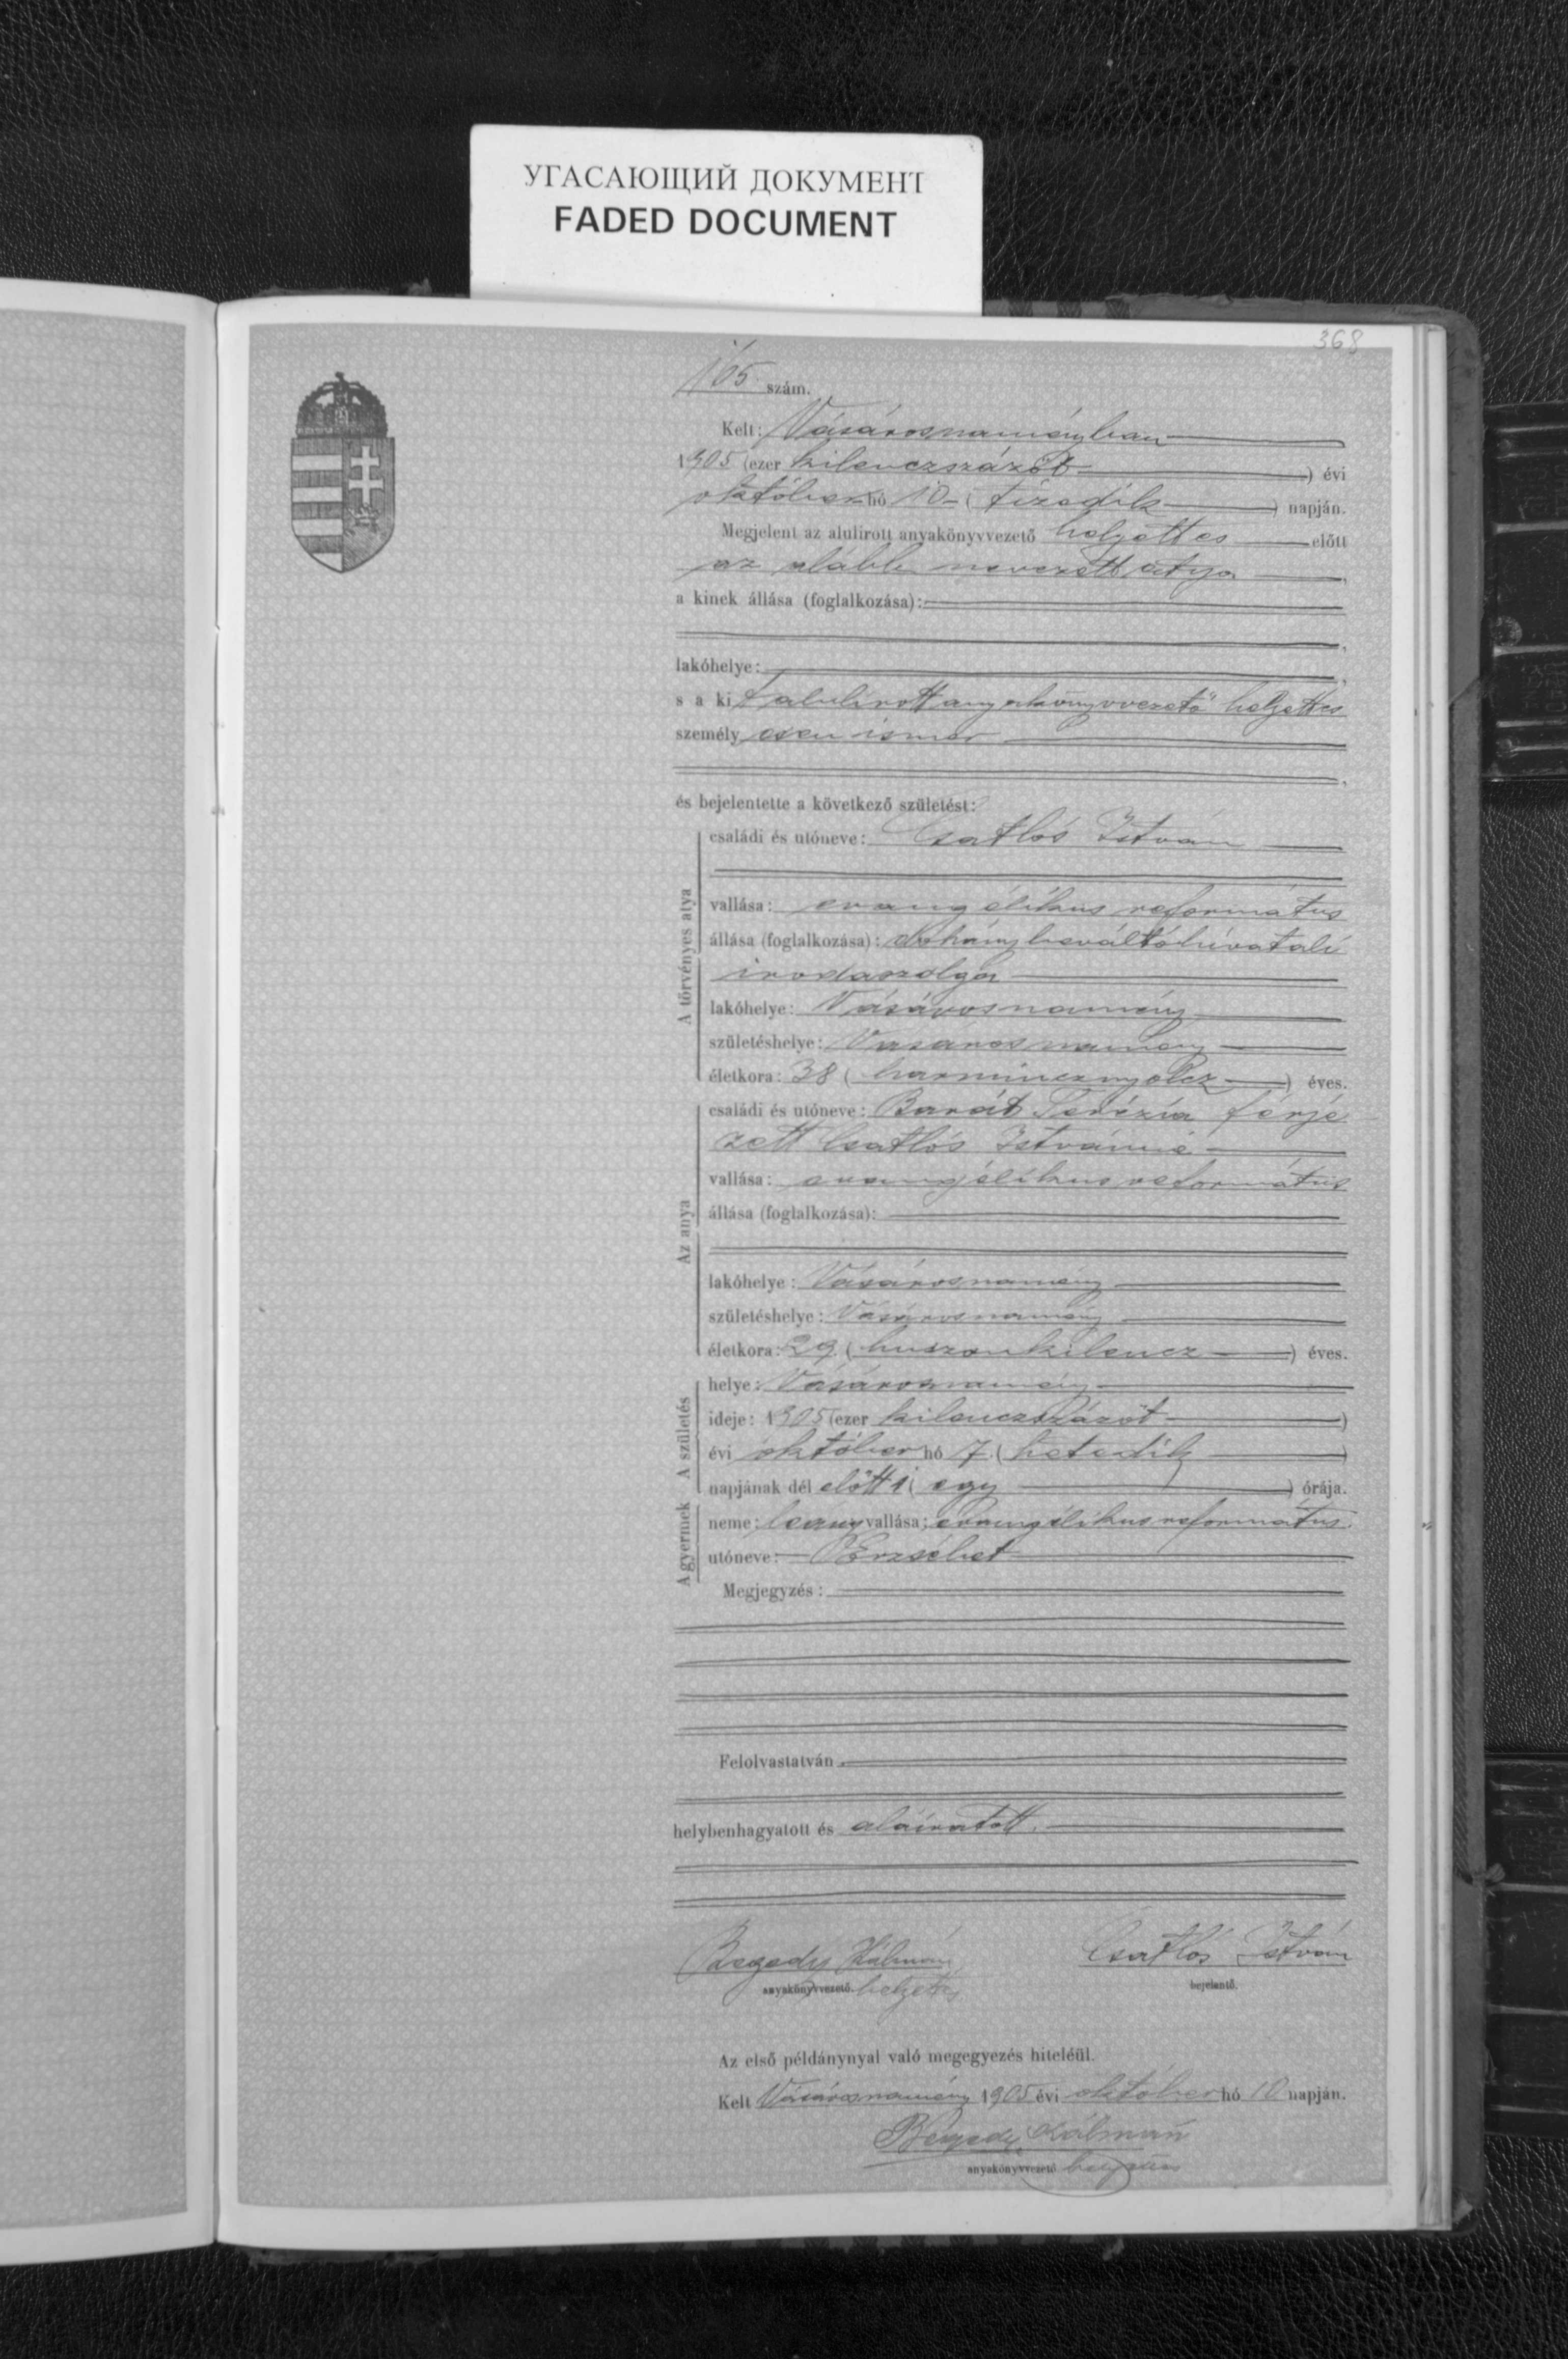 УГАСАЮЩИЙ ДОКУМЕНТ
FADED DOCUMENT
368
105 szám.
Kelt: Vásárosnaményban
1905 (ezer kilenczszázöt) évi
október hó 10 (tizedik) napján.
Megjelent az alulirott anyakönyvvezető helyettes előtt
az alább nevezett atya,
a kinek állása (foglalkozása):
lakóhelye:
s a ki t alulirott anyakönyvvezető helyettes
személyesen ismer
és bejelentette a következő születést:
A törvényes atya
családi és utóneve: Csatlós István
vallása: evangélikus református
állása (foglalkozása): dohánybeváltóhivatali
irodaszolga
lakóhelye: Vásárosnamény
születéshelye: Vásárosnamény
életkora: 38 (harmincznyolcz) éves.
Az anya
családi és utóneve: Barát Terézia férje
zett Csatlós Istvánné
vallása: evangélikus református
állása (foglalkozása):
lakóhelye: Vásárosnamény
születéshelye: Vásárosnamény
életkora: 29 (huszonkilencz) éves.
A születés
helye: Vásárosnamény
ideje: 1905 (ezer kilenczszázöt)
évi október hó 7. (hetedik)
napjának dél előtt 1 (egy) órája.
A gyermek
neme: leány vallása: evangélikus református
utóneve: Erzsébet
Megjegyzés:
Felolvastatván
helybenhagyatott és aláiratott.
Kálmán Csatlós István
anyakönyvvezető. helyettes bejelentő.
Az első példánynyal való megegyezés hiteléül.
Kelt Vásárosnamény 1905 évi október hó 10 napján.
Kálmán
anyakönyvvezető helyettes